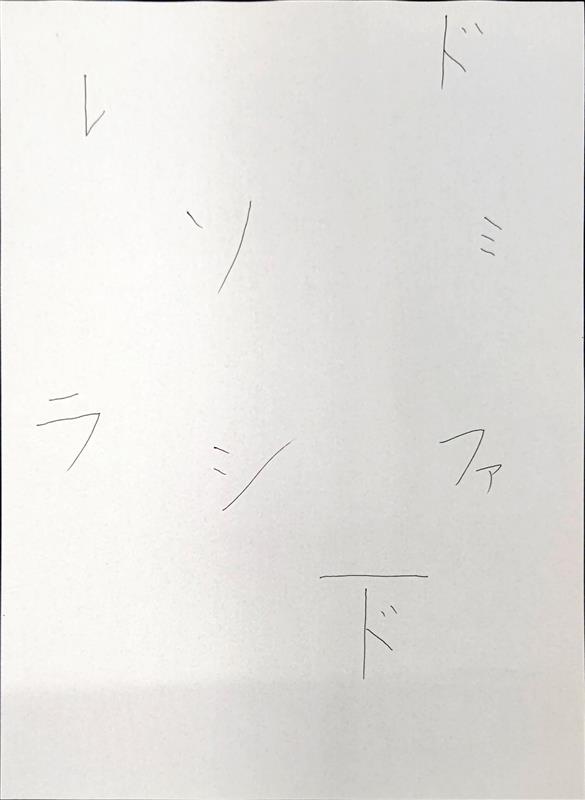 ド
レ
ソ
ミ
ラ
シ
ファ
ド